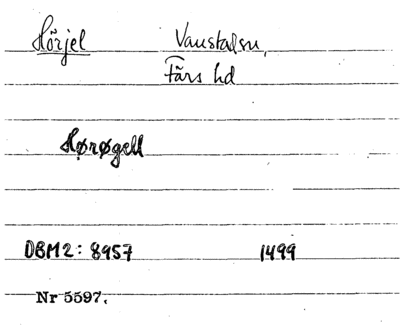 Hörjel Vanstad sn,
Färs hd
Hørøgell
DBM2: 8957 1499
Nr 5597.